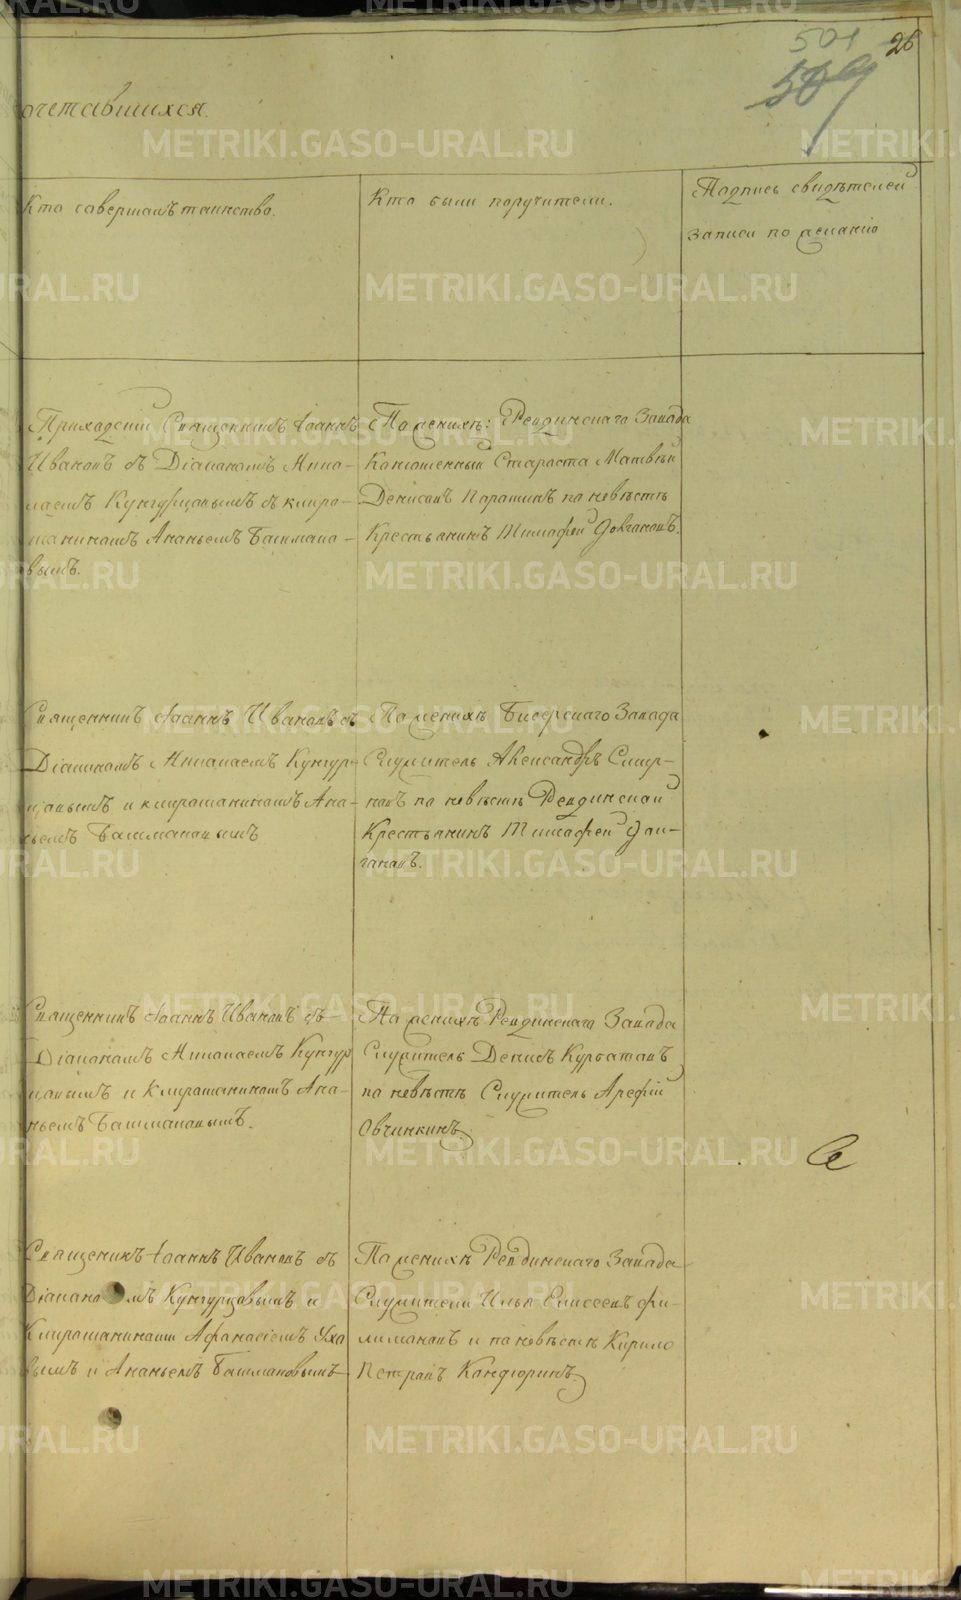 501
26
509
очетавшихся.
Кто совершалъ таинство.
Кто были поручители.
Подпись свидѣтелей
записи по желанію
Приходскій Священникъ Іоаннъ
Ивановъ съ Діакономъ Нико-
лаемъ Кунгурцовымъ съ клиро-
шаниномъ Ананьемъ Башмако-
вымъ.
По женихѣ: Ревдинскаго Завода
Конюшенный Староста Матвѣй
Денисовъ по невѣстѣ
Крестьянинъ Тимофей
Священникъ Іоаннъ Ивановъ съ
Діакономъ Николаемъ Кунгур-
цовымъ и клирошаниномъ Ана-
ньемъ Башмаковымъ
По женихѣ Бисерскаго Завода
Служитель Александръ Смир-
новъ по невѣстѣ Ревдинской
Крестьянинъ Тимофей
Священникъ Іоаннъ Ивановъ съ
Діакономъ Николаемъ Кунгур
цовымъ и клирошаниномъ Ана-
ньемъ Башмаковымъ.
По женихѣ Ревдинскаго Завода
Служитель Денисъ Курбатовъ
по невѣстѣ Служитель Арефій
Овчинкинъ
Священникъ Іоаннъ Ивановъ съ
Діакономъ Кунгурцовымъ и
Клирошанинами Афанасіемъ Ухо
вымъ и Ананьемъ Башмаковымъ
По женихѣ Ревдинскаго Завода
Служители Илья Елисеевъ Фи-
лимоновъ и по невѣстѣ Кирило
Петровъ Кандюринъ
METRIKI.GASO-URAL.RU